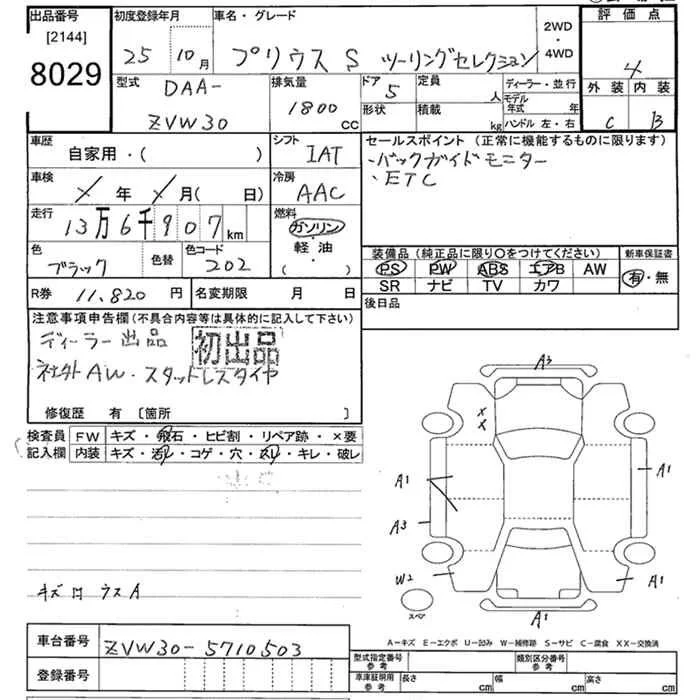 出品番号
[2144]
8029
初度登録年月
25 10月
車名・グレード
プリウス S ツーリングセレクション
2WD
・
4WD
評価点
4
外装 内装
C B
型式
DAA-
ZVW30
排気量
1800
cc
ドア
5
定員
人
形状
積載
kg
ディーラー・並行
モデル
年式 年
ハンドル 左・右
車歴
自家用・( )
シフト
IAT
車検
メ 年 メ 月( 日)
冷房
AAC
走行
13万6千907km
燃料
ガソリン・
軽油・
( )
色
ブラック
色替
色コード
202
R券 11,820 円
名変期限 月 日
セールスポイント(正常に機能するものに限ります)
・バックガイドモニター
・ETC
装備品(純正品に限り〇をつけてください)
PS PW ABS エアB AW
SR ナビ TV カワ
新車保証書
有・無
後日品
注意事項申告欄(不具合内容等は具体的に記入して下さい)
ディーラー出品
初出品
社外AW・スタットレスタイヤ
修復歴 有 [箇所 ]
検査員
記入欄
FW キズ・飛石・ヒビ割・リペア跡・×要
内装 キズ・汚れ・コゲ・穴・スレ・キレ・破レ
キズ ウスA
A3
X
X
A1
A1
A3
W2
A1
スペア
A1
A-キズ E-エクボ U-凹み W-補修跡 S-サビ C-腐食 XX-交換済
車台番号
ZVW30-5710503
登録番号
型式指定番号
参考
類別区分番号
参考
車庫証明用
参考
長さ cm
幅 cm
高さ cm